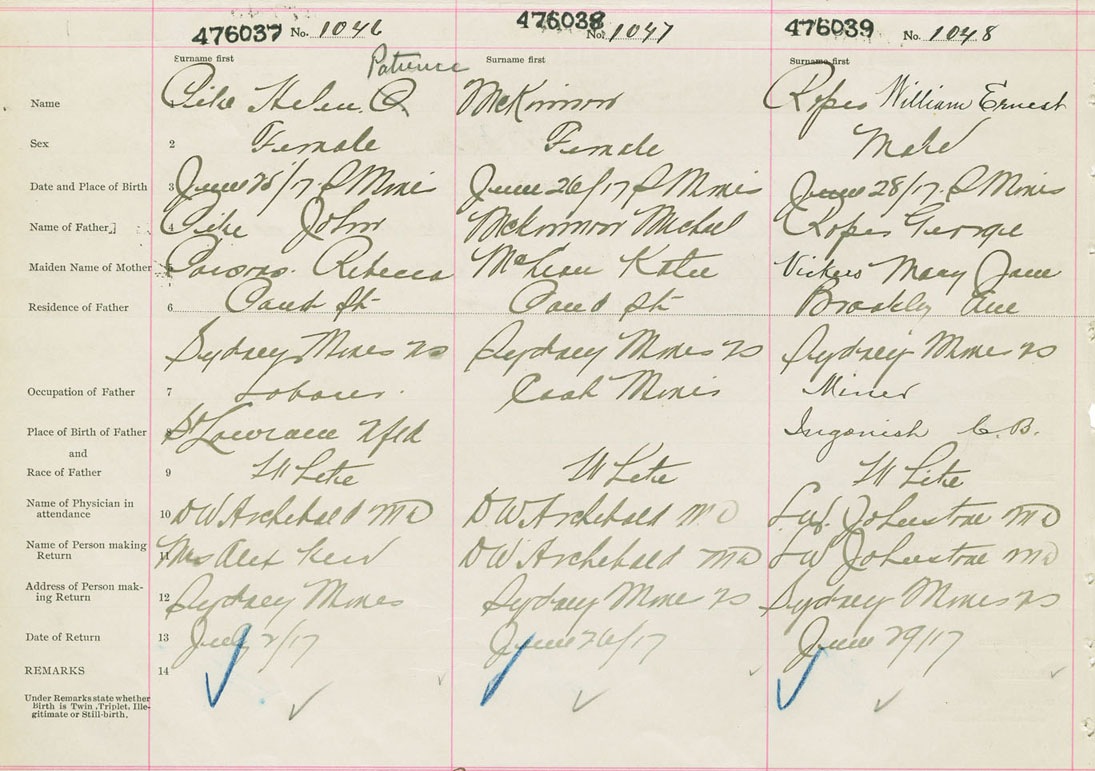 476037 No. 1046 476038 No. 1047 476039 No. 1048
Patience
Surname first Surname first Surname first
Name Pike Helen P McKinnon Ropes William Ernest
Sex 2 Female Female Male
Date and Place of Birth 3 June 25/17 S Mines June 26/17 S Mines June 28/17 S Mines
Name of Father 4 Pike John McKinnon Michael Ropes George
Maiden Name of Mother Parsons Rebecca McLean Katie Vickers Mary Jane
Residence of Father 6 St St Ave
Sydney Mines NS Sydney Mines NS Sydney Mines NS
Occupation of Father 7 Laborer. Coal Mines Miner
Place of Birth of Father 8 St Lawrance Nfld Ingonish C.B.
and
Race of Father 9 White White White
Name of Physician in
attendance 10 DW Archibald MD DW Archibald MD LW Johnstone MD
Name of Person making
Return 11 Mrs Alex DW Archibald MD LW Johnstone MD
Address of Person mak-
ing Return 12 Sydney Mines Sydney Mines NS Sydney Mines NS
Date of Return 13 July 2/17 June 26/17 June 29/17
REMARKS 14
Under Remarks state whether
Birth is Twin, Triplet, Ille-
gitimate or Still-birth.